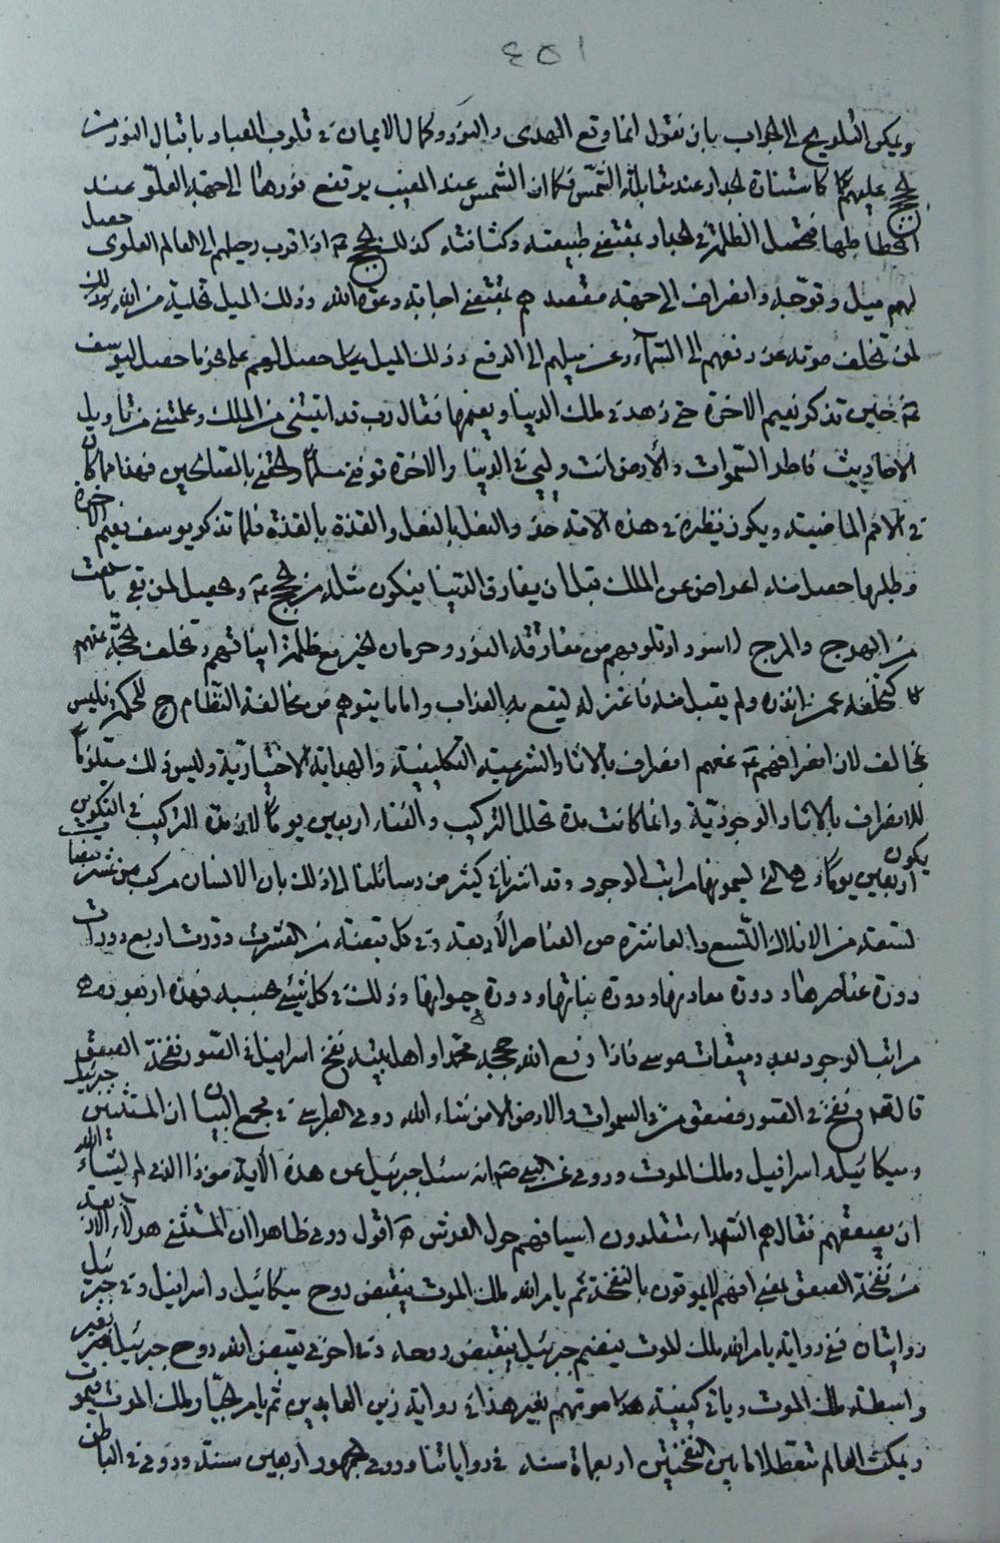 ١٥٤
ويمكن التلويح الى الجواب بان نقول انما وقع الهدى والنور وكمال الايمان فى قلوب العباد باقبال النور من
الحجج عليهم كاستنارة الجدار عند مقابلة الشمس فكما ان الشمس عند المغيب يرتفع نورها الى جهة العلو عند
انحطاطها فتحصل الظلمة فى الجدار بمقتضى طبيعته وكثافته كذلك الحجج ع‍ اذا قرب رحيلهم الى العالم العلوى حصل
لهم ميل وتوجه وانصراف الى جهة مقصدهم بمقتضى اجابة دعوة الله وذلك الميل تخلية من الله وذلك
لمن تخلف موته عن رفعهم الى السماء وعن ميلهم الى الرفع وذلك الميل حصل لهم على نحو ما حصل ليوسف
ع‍ حين تذكر نعيم الاخرة حتى زهد فى ملك الدنيا ونعيمها فقال رب قد اتيتنى من الملك وعلمتنى من تأويل
الاحاديث فاطر السموات والأرض انت وليى فى الدنيا والاخرة توفنى مسلما والحقنى بالصالحين فهذا مما كان
فى الامم الماضية ويكون نظيره فى هذه الامة حذو النعل بالنعل والقذة بالقذة فلما تذكر يوسف نعيم الاخرة
وطلبها حصل منه اعراض عن الملك قبل ان يفارق الدنيا فيكون مثله من الحجج ع‍ ويحصل لمن بقى ما سمعت
من الهرج والمرج لاسوداد قلوبهم من مفارقة النور وحرمان الخير مع ظلمة انياتهم وتخلف الحجة عنهم
كتخلفه عمن انذره ولم يقبل منه فاعتزله ليقع به العذاب واما ما يتوهم من مخالفة النظام الحكمة فليس
بمخالف لان انصرافهم ع‍ عنهم انصراف بالاثار الشرعية التكليفية والهداية الاختيارية وليس ذلك مستلزما
للانصراف بالاثار الوجودية وانما كانت مدة تحلل التركيب والفناء اربعين يوما لان مدة التركيب فى التكوين
يكون اربعين يوما وهى التى يسمونها مراتب الوجود وقد اشرنا فى كثير من رسائلنا الى ذلك بان الانسان مركب من عشر قبضات
تسعة من الافلاك التسع والعاشرة من العناصر الأربعة وفى كل قبضة من العشرة دورت اربع دورات
دورة عناصرها ودورة معادنها ودورة نباتها ودورة حيوانها وذلك فى كل شىء بحسبه فهذه اربعون هى
مراتب الوجود وميقات موسى فاذا رفع الله حججه محمدا واهل بيته نفخ اسرافيل فى الصور نفخة الصعق
قال تعالى ونفخ فى الصور فصعق من فى السموات والارض الا من شاء الله روى الطبرسى فى مجمع البيان ان المستثنين جبرئيل
وميكائيل واسرافيل وملك الموت وروى عن النبى ص‍ انه سئل جبرئيل عن هذه الآية من ذا الذى لم يشاء الله
ان يصعقهم فقال هم الشهداء متقلدون اسيافهم حول العرش اقول وظاهرا ان المستثنى هؤلاء الاربعة
من نفخة الصعق بمعنى انهم لا يموتون بالنفخة ثم يامر الله ملك الموت فيقبض روح ميكائيل واسرافيل وفى جبرئيل
روايتان ففى رواية يامر الله ملك الموت فيقبض روحه وفى اخرى يقبض الله روح جبرئيل بغير
واسطة ملك الموت وياتى كيفية موتهم بغير هذا فى رواية زين العابدين ثم يامر الجبار ملك الموت فيموت
ويمكث العالم متعطلا ما بين النفختين اربعمأة سنة فى رواياتنا وروى الجمهور اربعين سنة وروى فى الباطن